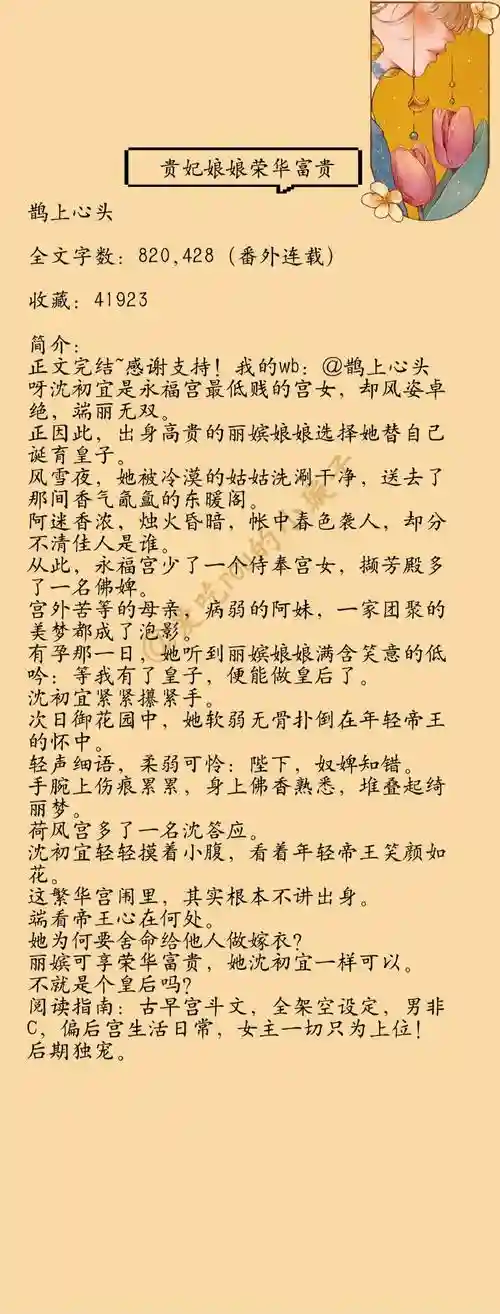 贵妃娘娘荣华富贵
鹊上心头
全文字数：820,428（番外连载）
收藏：41923
简介：
正文完结~感谢支持！我的wb：@鹊上心头
呀沈初宜是永福宫最低贱的宫女，却风姿卓
绝，端丽无双。
正因此，出身高贵的丽嫔娘娘选择她替自己
诞育皇子。
风雪夜，她被冷漠的姑姑洗涮干净，送去了
那间香气氤氲的东暖阁。
阿迷香浓，烛火昏暗，帐中春色袭人，却分
不清佳人是谁。
从此，永福宫少了一个侍奉宫女，撷芳殿多
了一名佛婢。
宫外苦等的母亲，病弱的阿妹，一家团聚的
美梦都成了泡影。
有孕那一日，她听到丽嫔娘娘满含笑意的低
吟：等我有了皇子，便能做皇后了。
沈初宜紧紧攥紧手。
次日御花园中，她软弱无骨扑倒在年轻帝王
的怀中。
轻声细语，柔弱可怜：陛下，奴婢知错。
手腕上伤痕累累，身上佛香熟悉，堆叠起绮
丽梦。
荷风宫多了一名沈答应。
沈初宜轻轻摸着小腹，看着年轻帝王笑颜如
花。
这繁华宫闹里，其实根本不讲出身。
端看帝王心在何处。
她为何要舍命给他人做嫁衣？
丽嫔可享荣华富贵，她沈初宜一样可以。
不就是个皇后吗？
阅读指南：古早宫斗文，全架空设定，男非
C，偏后宫生活日常，女主一切只为上位！
后期独宠。